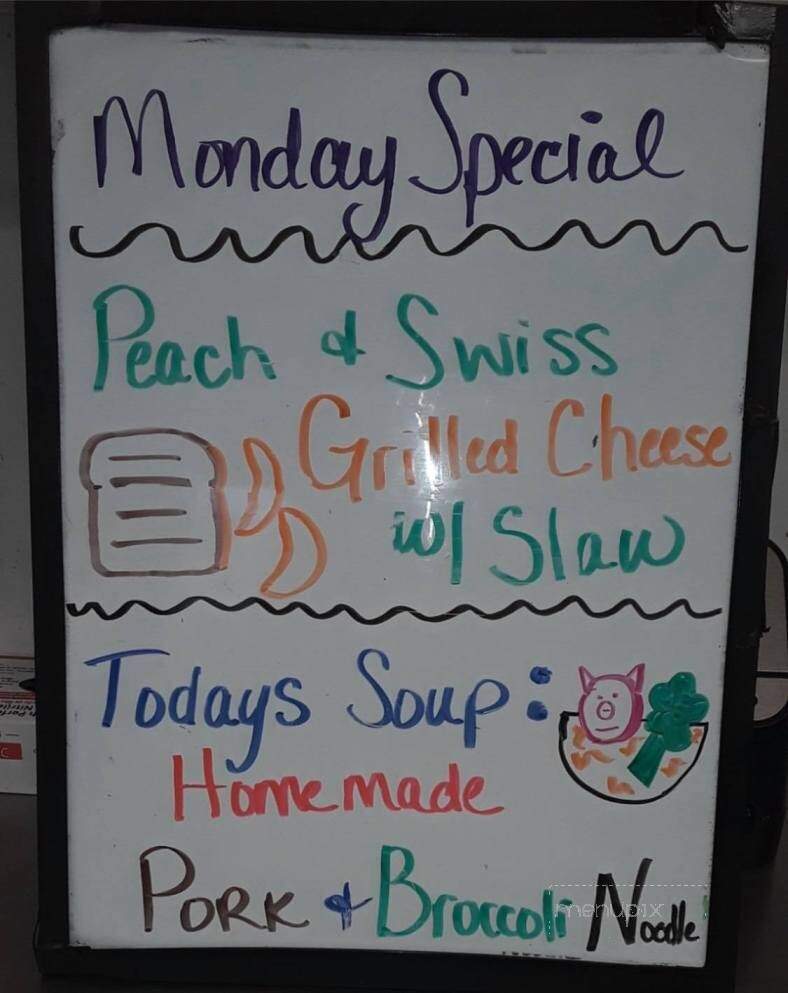 Monday Special
Peach & Swiss
Grilled Cheese
w/ Slaw
Todays Soup:
Homemade
Pork & Broccoli Noodle
menupix